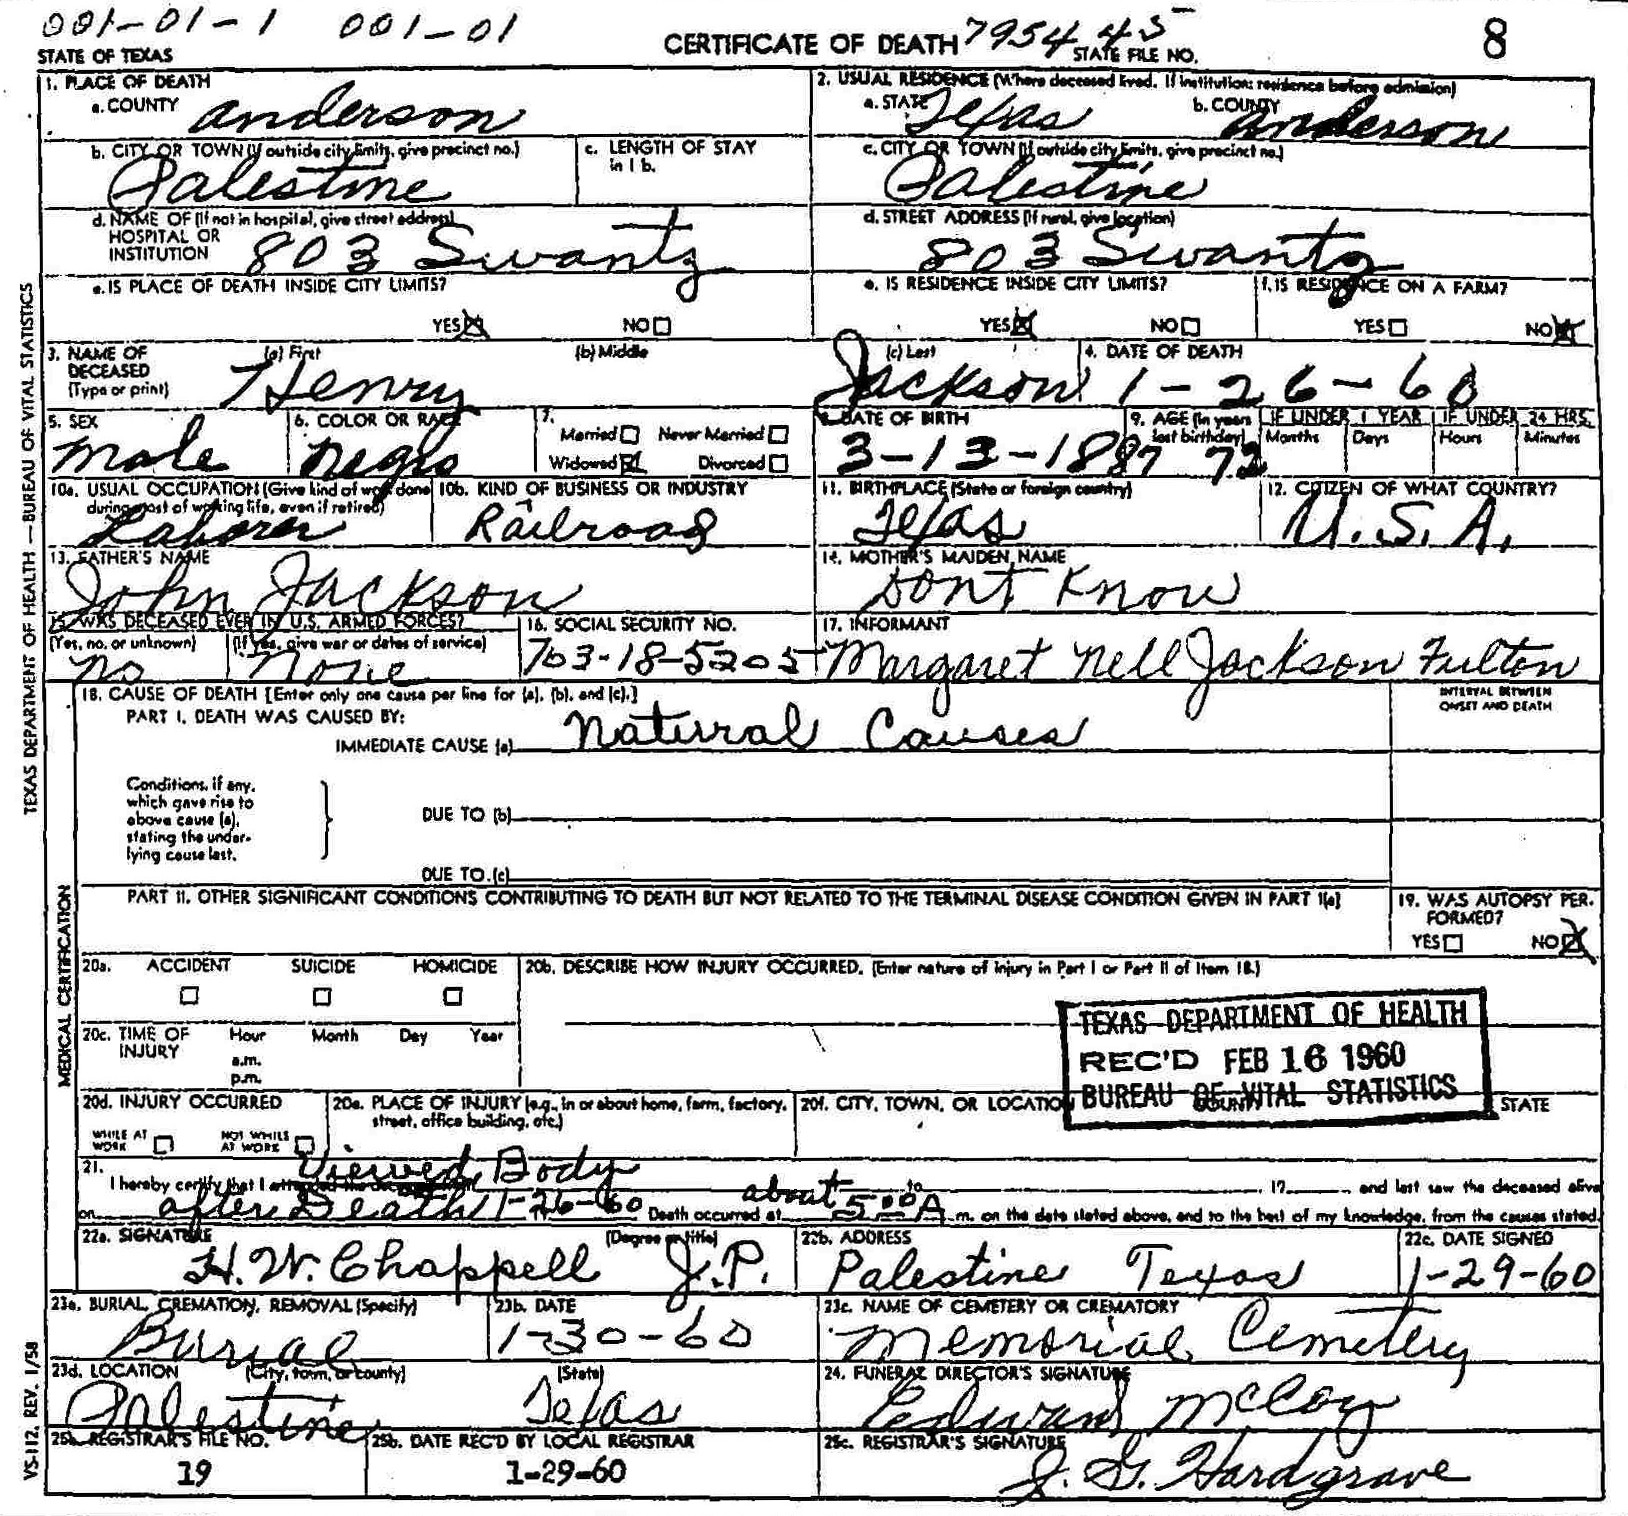 001-01-1 001-01
CERTIFICATE OF DEATH 7954 45 8
STATE OF TEXAS STATE FILE NO.
1. PLACE OF DEATH
a. COUNTY Anderson
2. USUAL RESIDENCE (Where deceased lived. If institution: residence before admission)
a. STATE Texas b. COUNTY Anderson
b. CITY OR TOWN (If outside city limits, give precinct no.) Palestine
c. LENGTH OF STAY in 1 b.
c. CITY OR TOWN (If outside city limits, give precinct no.) Palestine
d. NAME OF (If not in hospital, give street address) HOSPITAL OR INSTITUTION 803 Swantz
d. STREET ADDRESS (If rural, give location) 803 Swantz
e. IS PLACE OF DEATH INSIDE CITY LIMITS?
YES☒ NO☐
e. IS RESIDENCE INSIDE CITY LIMITS?
YES☒ NO☐
f. IS RESIDENCE ON A FARM?
YES☐ NO☒
3. NAME OF DECEASED (Type or print)
(a) First Henry (b) Middle (c) Last Jackson
4. DATE OF DEATH 1-26-60
5. SEX Male
6. COLOR OR RACE Negro
7. Married☐ Never Married☐
Widowed☒ Divorced☐
8. DATE OF BIRTH 3-13-1887
9. AGE (In years last birthday) 72
IF UNDER 1 YEAR Months Days
IF UNDER 24 HRS. Hours Minutes
10a. USUAL OCCUPATION (Give kind of work done during most of working life, even if retired) Laborer
10b. KIND OF BUSINESS OR INDUSTRY Railroad
11. BIRTHPLACE (State or foreign country) Texas
12. CITIZEN OF WHAT COUNTRY? U.S.A.
13. FATHER'S NAME John Jackson
14. MOTHER'S MAIDEN NAME Dont Know
15. WAS DECEASED EVER IN U.S. ARMED FORCES?
(Yes, no, or unknown) No (If yes, give war or dates of service) None
16. SOCIAL SECURITY NO. 703-18-5205
17. INFORMANT Margaret Nell Jackson Fulton
18. CAUSE OF DEATH [Enter only one cause per line for (a), (b), and (c).]
INTERVAL BETWEEN ONSET AND DEATH
PART I. DEATH WAS CAUSED BY:
IMMEDIATE CAUSE (a) Naturral Causes
Conditions, if any, which gave rise to above cause (a), stating the underlying cause last.
DUE TO (b)
DUE TO (c)
PART II. OTHER SIGNIFICANT CONDITIONS CONTRIBUTING TO DEATH BUT NOT RELATED TO THE TERMINAL DISEASE CONDITION GIVEN IN PART I(a)
19. WAS AUTOPSY PERFORMED?
YES☐ NO☒
20a. ACCIDENT ☐ SUICIDE ☐ HOMICIDE ☐
20b. DESCRIBE HOW INJURY OCCURRED. (Enter nature of injury in Part I or Part II of Item 18.)
20c. TIME OF INJURY Hour a.m. p.m. Month Day Year
TEXAS DEPARTMENT OF HEALTH
REC'D FEB 16 1960
BUREAU OF VITAL STATISTICS
20d. INJURY OCCURRED
WHILE AT WORK ☐ NOT WHILE AT WORK ☐
20e. PLACE OF INJURY (e.g., in or about home, farm, factory, street, office building, etc.)
20f. CITY, TOWN, OR LOCATION COUNTY STATE
21. Viewed Body
I hereby certify that I attended the deceased from to , 19 and last saw the deceased alive
on after Death 1-26-60 Death occurred at about 5:00 A m. on the date stated above, and to the best of my knowledge, from the causes stated.
22a. SIGNATURE (Degree or title) H.W. Chappell J.P.
22b. ADDRESS Palestine Texas
22c. DATE SIGNED 1-29-60
23a. BURIAL, CREMATION, REMOVAL (Specify) Burial
23b. DATE 1-30-60
23c. NAME OF CEMETERY OR CREMATORY Memorial Cemetery
23d. LOCATION (City, town, or county) (State) Palestine Texas
24. FUNERAL DIRECTOR'S SIGNATURE Edward McCoy
25a. REGISTRAR'S FILE NO. 19
25b. DATE REC'D BY LOCAL REGISTRAR 1-29-60
25c. REGISTRAR'S SIGNATURE J. G. Hardgrave
TEXAS DEPARTMENT OF HEALTH—BUREAU OF VITAL STATISTICS
MEDICAL CERTIFICATION
VS-112, REV. 1/58